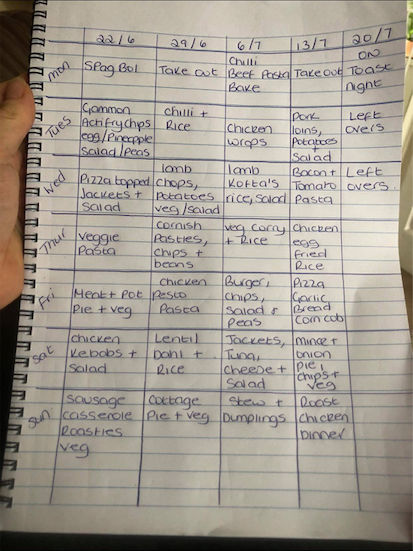 22/6 29/6 6/7 13/7 20/7
Mon
Spag Bol
Take out
Chilli
Beef Pasta
Bake
Take out
ON
Toast
Night
Tues
Gammon
Actifry Chips
egg/Pineapple
Salad/Peas
Chilli +
Rice
Chicken
Wraps
Pork
loins,
Potatoes
+
Salad
Left
overs
Wed
Pizza topped
Jackets +
Salad
lamb
Chops,
Potatoes
veg/salad
lamb
Kofta's
rice, Salad
Bacon +
Tomato
Pasta
Left
overs.
Thur
Veggie
Pasta
Cornish
Pasties,
Chips +
beans
veg curry
+ Rice
Chicken
egg
Fried
Rice
Fri
Meat + Pot
Pie + veg
Chicken
Pesto
Pasta
Burger,
Chips,
Salad &
Peas
Pizza
Garlic
Bread
Corn cob
Sat
Chicken
Kebobs +
Salad
Lentil
Dahl +
Rice
Jackets,
Tuna,
Cheese +
Salad
Mince +
onion
Pie,
Chips +
Veg
Sun
Sausage
Casserole
Roasties
veg
Cottage
Pie + veg
Stew +
Dumplings
Roast
Chicken
Dinner